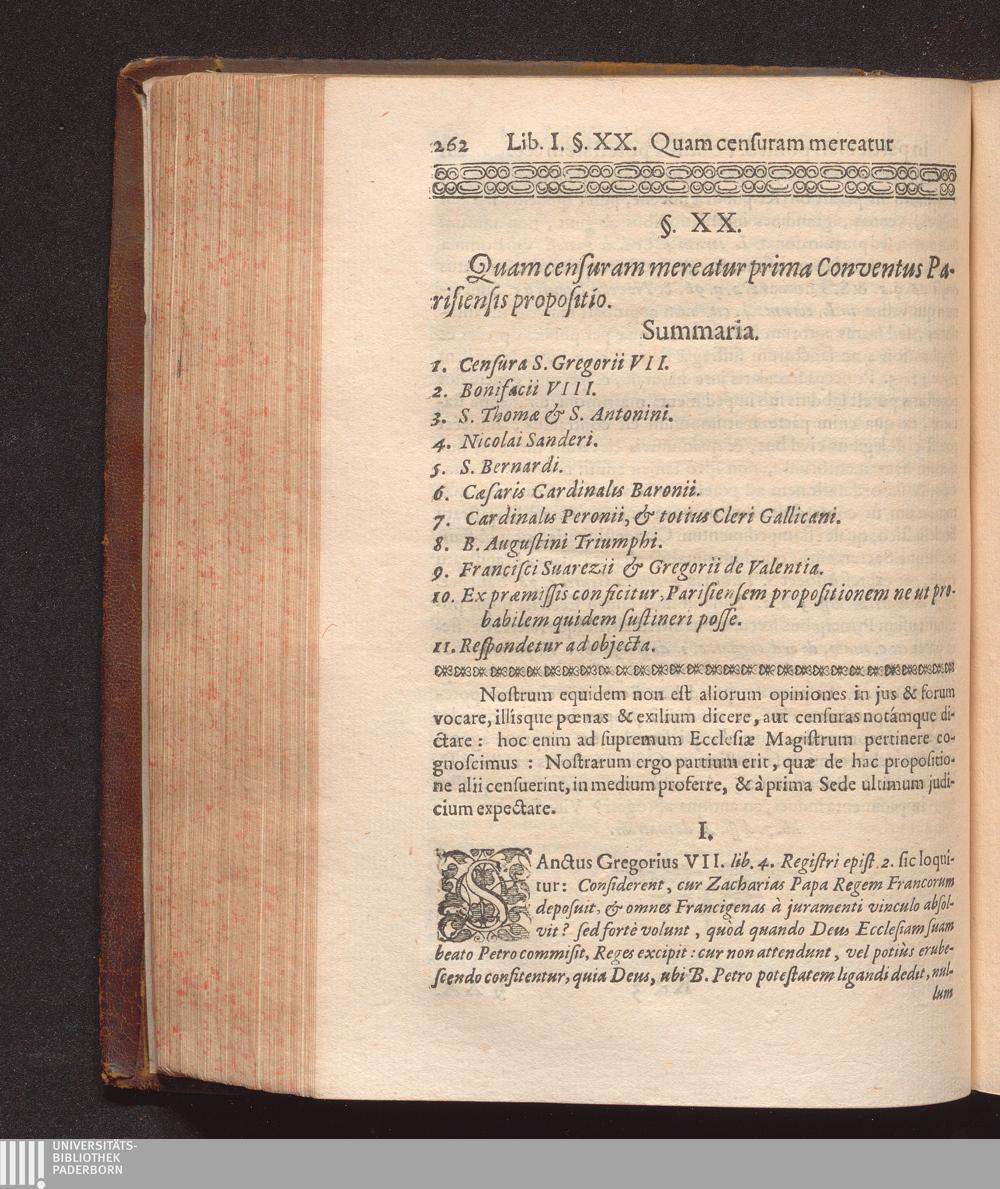 262 Lib. I. §. XX. Quam cenſuram mereatur
§. XX.
Quam cenſuram mereatur prima Conventus Pa-
riſienſis propoſitio.
Summaria.
1. Cenſura S. Gregorii VII.
2. Bonifacii VIII.
3. S. Thomæ & S. Antonini.
4. Nicolai Sanderi.
5. S. Bernardi.
6. Cæſaris Cardinalis Baronii.
7. Cardinalis Peronii, & totius Cleri Gallicani.
8. B. Auguſtini Triumphi.
9. Franciſci Suarezii & Gregorii de Valentia.
10. Ex præmiſſis conficitur, Pariſienſem propoſitionem ne ut pro-
babilem quidem ſuſtineri poſſe.
11. Reſpondetur ad objecta.
Noſtrum equidem non eſt aliorum opiniones in jus & forum
vocare, illisque pœnas & exilium dicere, aut cenſuras notámque di-
ctare : hoc enim ad ſupremum Eccleſiæ Magiſtrum pertinere co-
gnoſcimus : Noſtrarum ergo partium erit, quæ de hac propoſitio-
ne alii cenſuerint, in medium proferre, & à prima Sede ultimum judi-
cium expectare.
I.
SAnctus Gregorius VII. lib. 4. Regiſtri epiſt. 2. ſic loqui-
tur: Conſiderent, cur Zacharias Papa Regem Francorum
depoſuit, & omnes Francigenas à juramenti vinculo abſol-
vit? ſed fortè volunt, quòd quando Deus Eccleſiam ſuam
beato Petro commiſit, Reges excipit : cur non attendunt, vel potiùs erube-
ſcendo confitentur, quia Deus, ubi B. Petro poteſtatem ligandi dedit, nul-
lum
UNIVERSITÄTS-
BIBLIOTHEK
PADERBORN